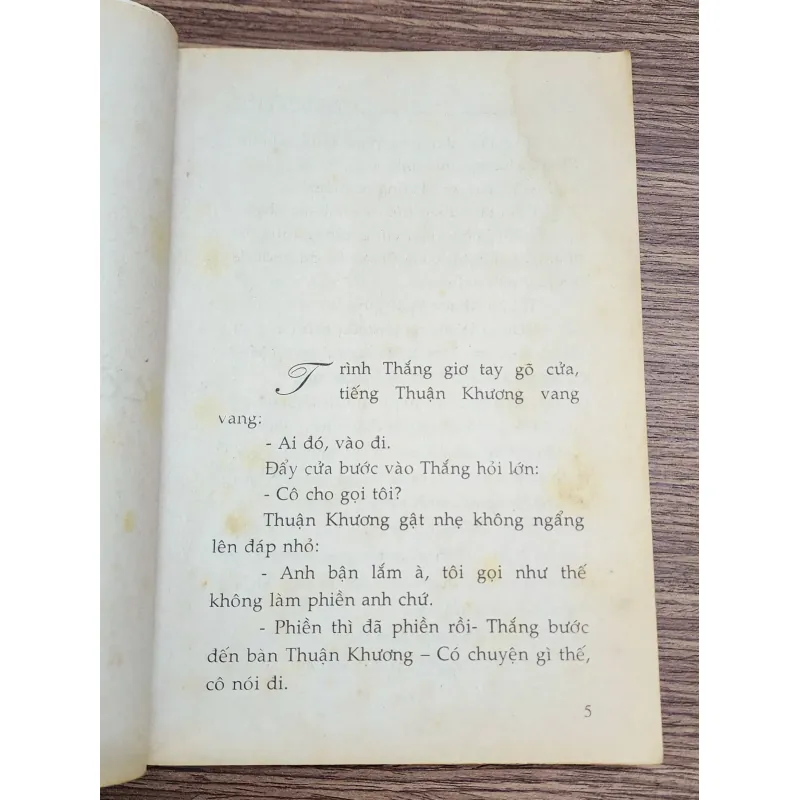 Trình Thắng giơ tay gõ cửa,
tiếng Thuận Khương vang
vang:
- Ai đó, vào đi.
Đẩy cửa bước vào Thắng hỏi lớn:
- Cô cho gọi tôi?
Thuận Khương gật nhẹ không ngẩng
lên đáp nhỏ:
- Anh bận lắm à, tôi gọi như thế
không làm phiền anh chứ.
- Phiền thì đã phiền rồi- Thắng bước
đến bàn Thuận Khương – Có chuyện gì thế,
cô nói đi.
5